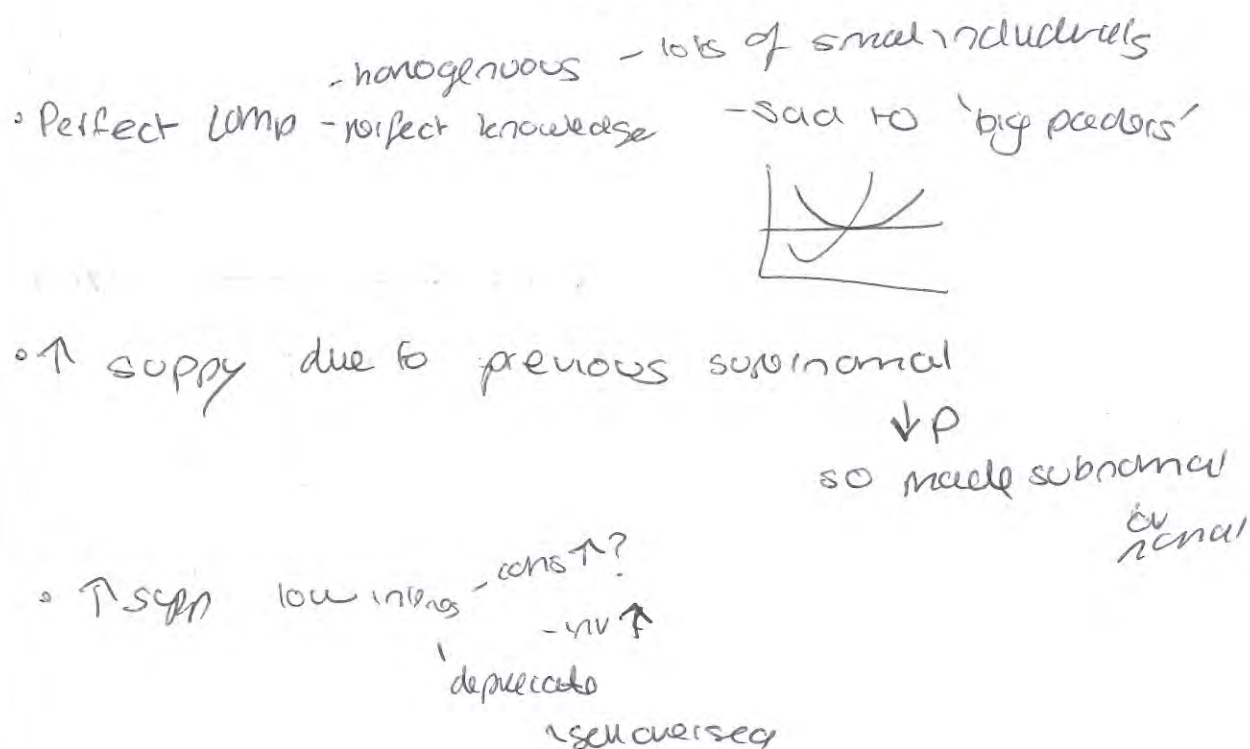 - homogenuous - lots of small individuals
• Perfect comp - perfect knowledge - said to 'big
↑ supply due to previous supernormal
↓ P
so made subnormal
or
normal
• ↑ supp low - cons ↑?
- inv ↑
depreciate
sell oversea